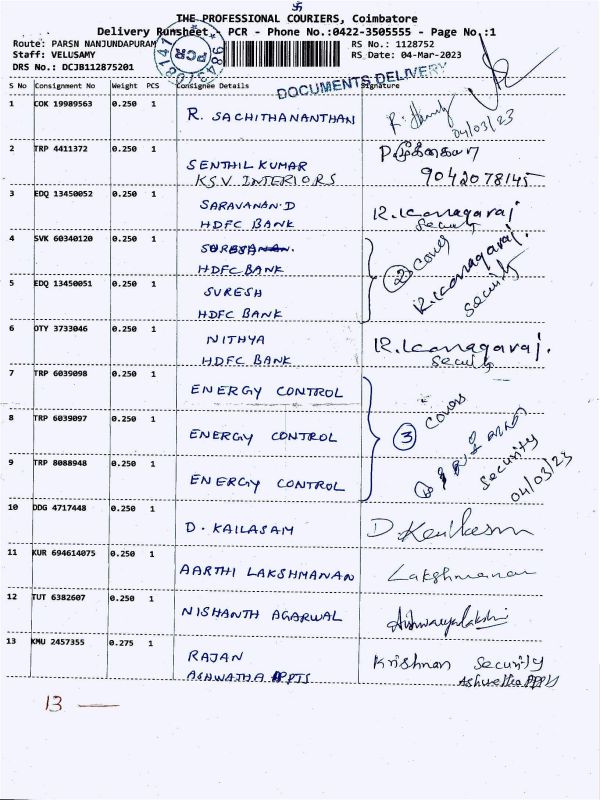 THE PROFESSIONAL COURIERS, Coimbatore
Delivery Runsheet - PCR - Phone No.:0422-3505555 - Page No.:1
Route: PARSN NANJUNDAPURAM RS No.: 1128752
Staff: VELUSAMY RS Date: 04-Mar-2023
DRS No.: DCJB112875201
PCR
DOCUMENTS DELIVERY
S No Consignment No Weight PCS Consignee Details Signature
1 COK 19989563 0.250 1 R. SACHITHANANTHAN
04/03/23
2 TRP 4411372 0.250 1 SENTHIL KUMAR
KSV INTERIORS 9042078145
3 EDQ 13450052 0.250 1 SARAVANAN.D R.Kanagaraj
HDFC BANK Security
4 SVK 60340120 0.250 1
HDFC BANK
2 Covers
R.Kanagaraj.
Security
5 EDQ 13450051 0.250 1 SURESH
HDFC BANK
6 OTY 3733046 0.250 1 NITHYA R.Kanagaraj.
HDFC BANK Security
7 TRP 6039098 0.250 1 ENERGY CONTROL
8 TRP 6039097 0.250 1 ENERGY CONTROL
3 Covers
Security
04/03/23
9 TRP 8088948 0.250 1 ENERGY CONTROL
10 DDG 4717448 0.250 1 D. KAILASAM
11 KUR 694614075 0.250 1 AARTHI LAKSHMANAN Lakshmanan
12 TUT 6382607 0.250 1 NISHANTH AGARWAL
13 KMU 2457355 0.275 1 RAJAN Krishnan Security
ASHWATHA APPTS
13 —